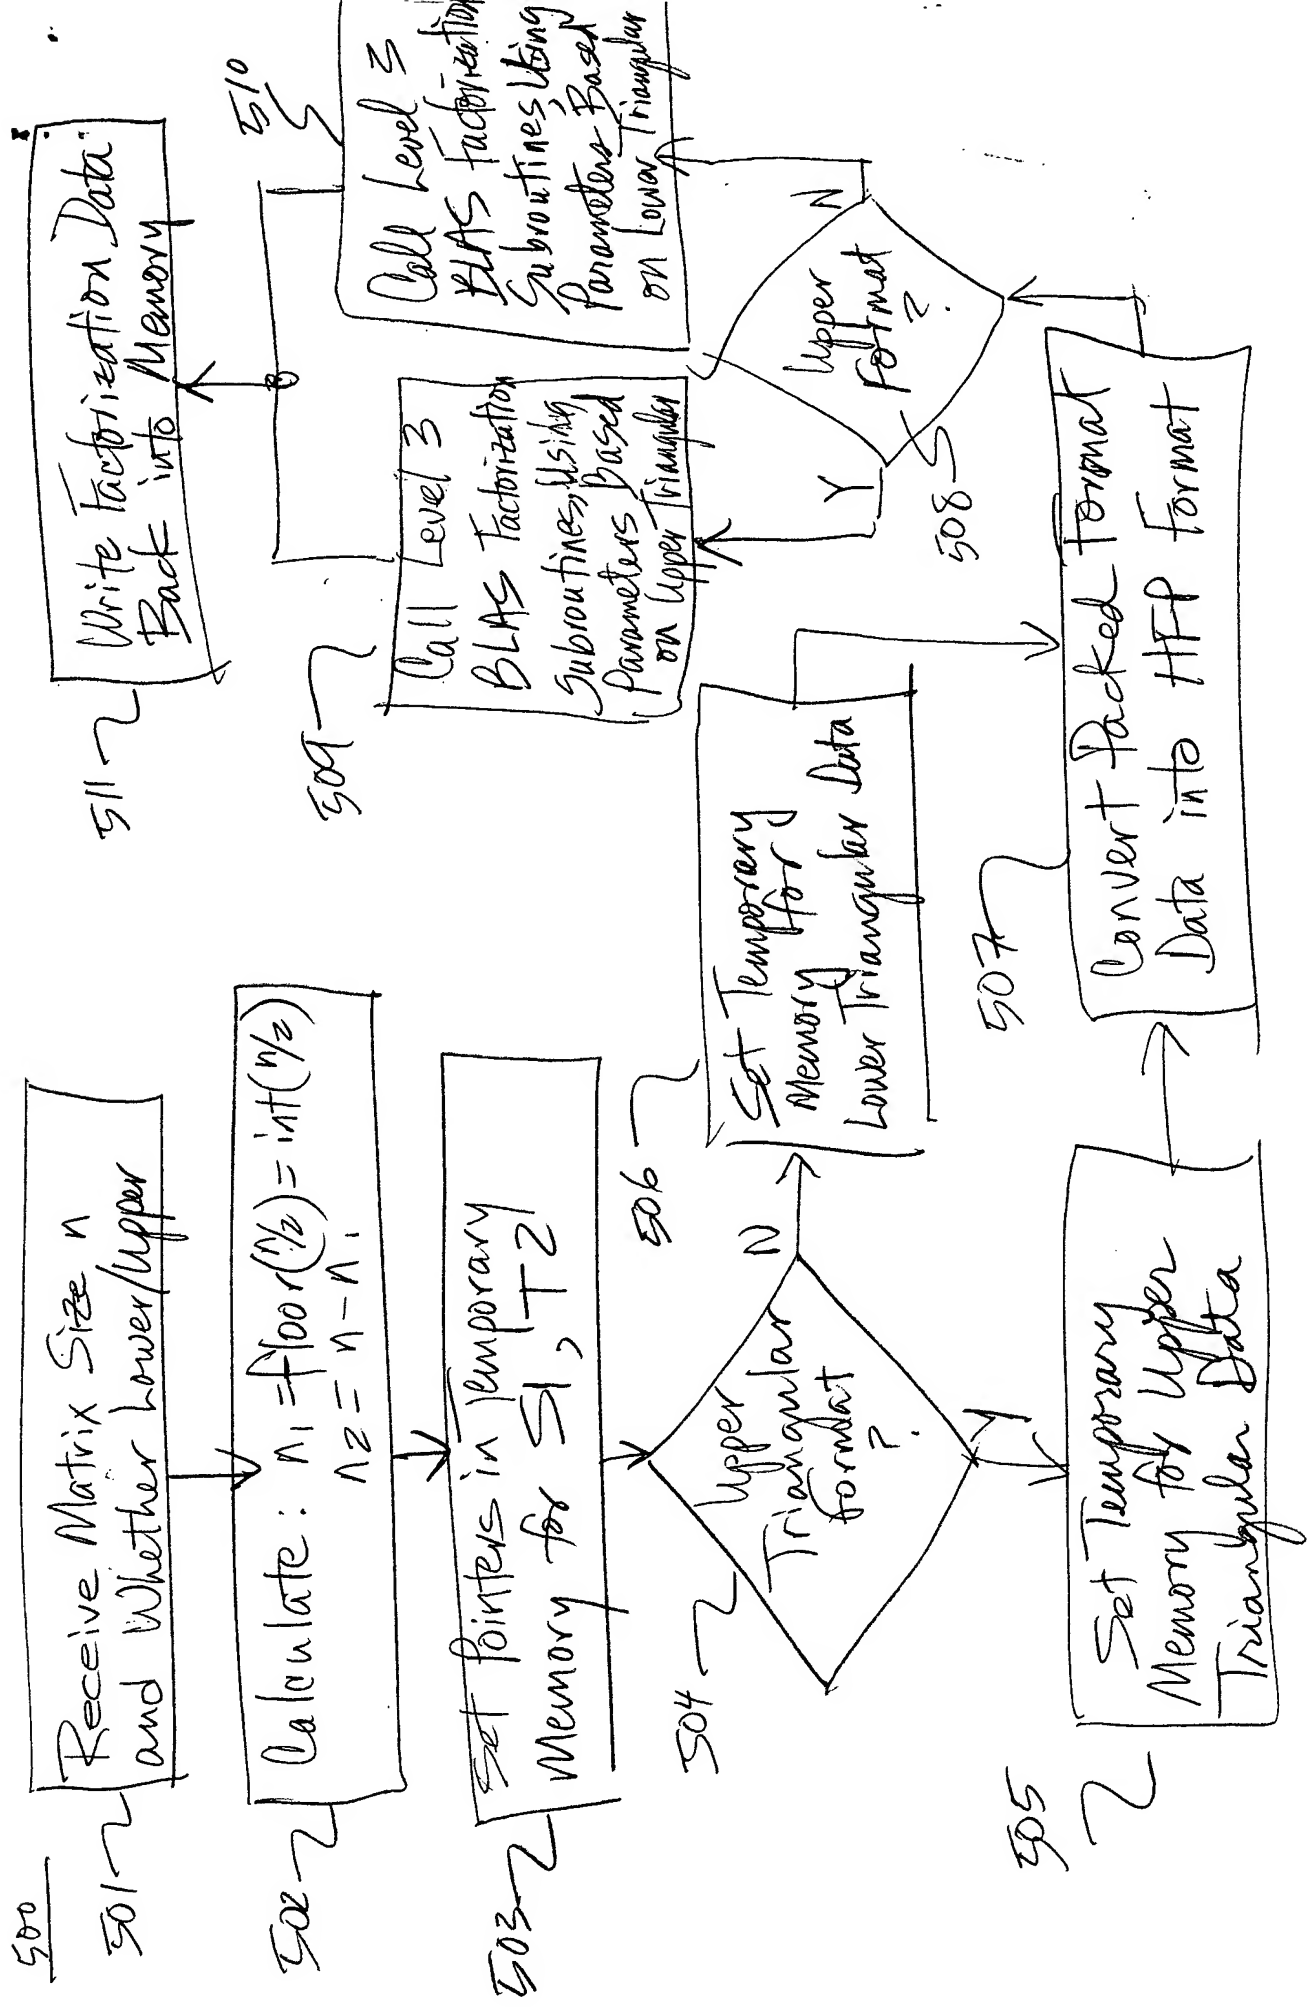 500
501
Receive Matrix Size n
and Whether Lower/Upper
502
Calculate: n1 = floor(n/2) = int(n/2)
n2 = n - n1
503
Set Pointers in Temporary
Memory for S1, T2
504
Upper
Triangular
format
?
N
Y
505
Set Temporary
Memory for Upper
Triangular Data
506
Set Temporary
Memory for
Lower Triangular Data
507
Convert Packed Format
Data into HFP Format
508
Upper
Format
?
Y
N
509
Call Level 3
BLAS Factorization
Subroutines, Using
Parameters Based
on Upper Triangular
510
Call Level 3
BLAS Factorization
Subroutines, Using
Parameters Based
on Lower Triangular
511
Write Factorization Data
Back into Memory